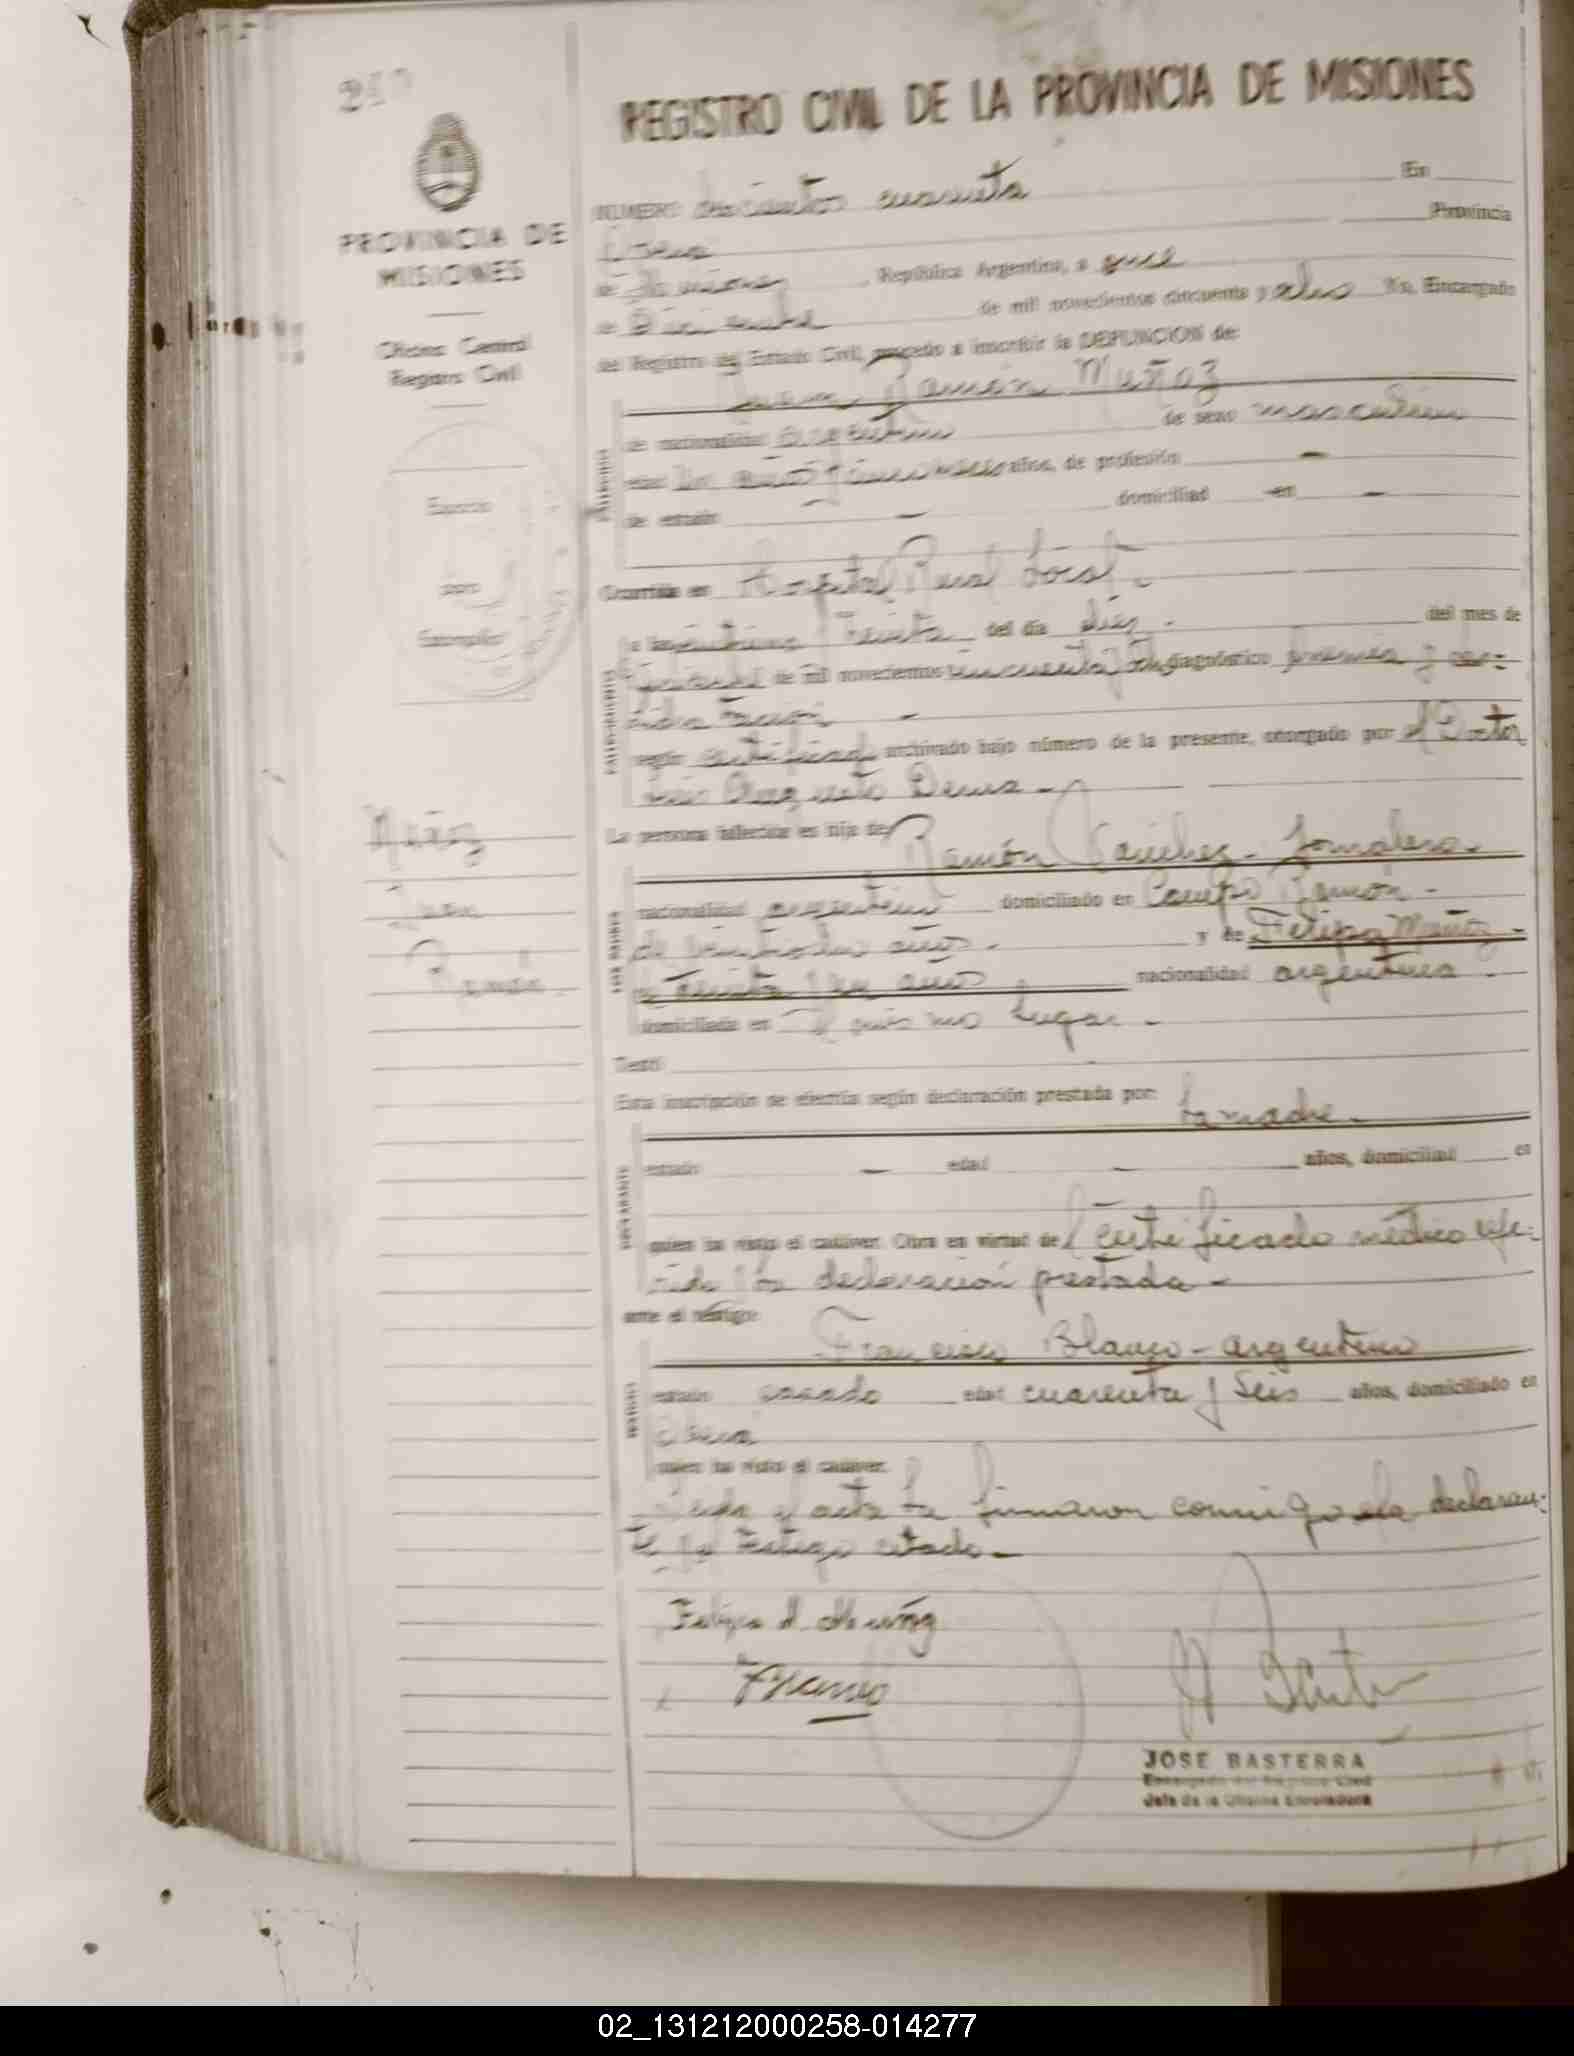 240
REGISTRO CIVIL DE LA PROVINCIA DE MISIONES
PROVINCIA DE
MISIONES
Oficina Central
Registro Civil
NUMERO doscientos cuarenta En
Oberá Provincia
de Misiones, República Argentina, a once
de Diciembre de mil novecientos cincuenta y dos Yo, Encargado
de Registro de Estado Civil, procedo a inscribir la DEFUNCION de:
Juan Ramón Muñaz
de nacionalidad argentino de sexo masculino
edad un año y meses años, de profesión -
de estado - domiciliad en -
Ocurrida en Hospital Rural Local.-
a las treinta del día diez.- del mes de
de mil novecientos cincuenta y diagnóstico y des-
hidratación -
según certificado archivado bajo número de la presente, otorgado por el Doctor
Luis Augusto -
La persona fallecida es hija de Ramón Sánchez - Jornalero.-
nacionalidad argentino domiciliado en Campo Ramón -
de años.- y de Felipa Muñoz -
de treinta y un años nacionalidad argentina.-
domiciliada en el mismo lugar.-
Muñoz
Juan
Ramón.
Testó
Esta inscripción se efectúa según declaración prestada por: la madre.-
estado - edad - años, domiciliad en
quien ha visto el cadáver. Obra en virtud de l certificado médico refe-
rido y la declaración prestada -
ante el testigo:
Francisco Blanco - argentino
estado casado edad cuarenta y seis años, domiciliado en
Oberá
quien ha visto el cadáver.
Leída el acta la firmaron conmigo la declaran-
te y el testigo citado.-
Felipa Muñoz
FBlanco
JOSE BASTERRA
Encargado del Registro Civil
Jefe de la Oficina Enroladora
02_131212000258-014277